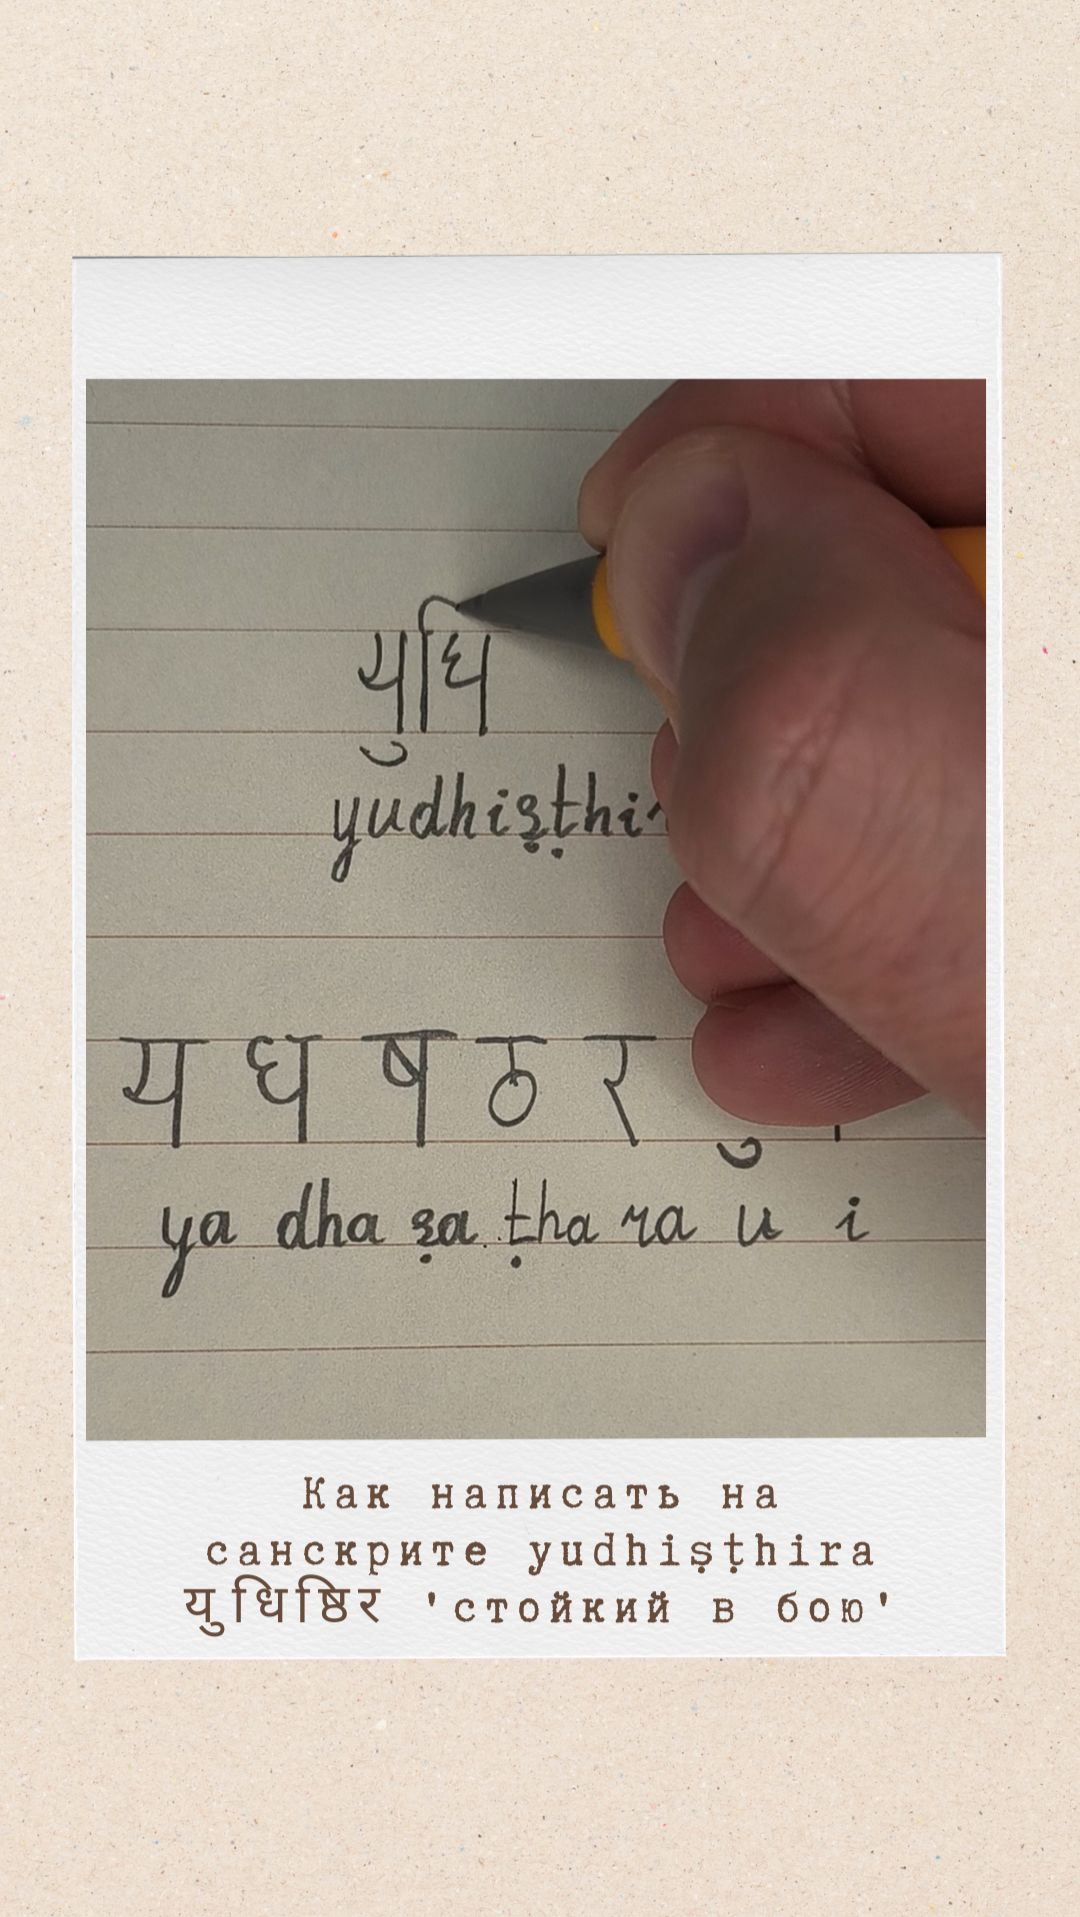 युधि
yudhiṣṭhir
य ध ष ठ र ु
ya dha ṣa ṭha ra u i
Как написать на
санскрите yudhiṣṭhira
युधिष्ठिर 'стойкий в бою'